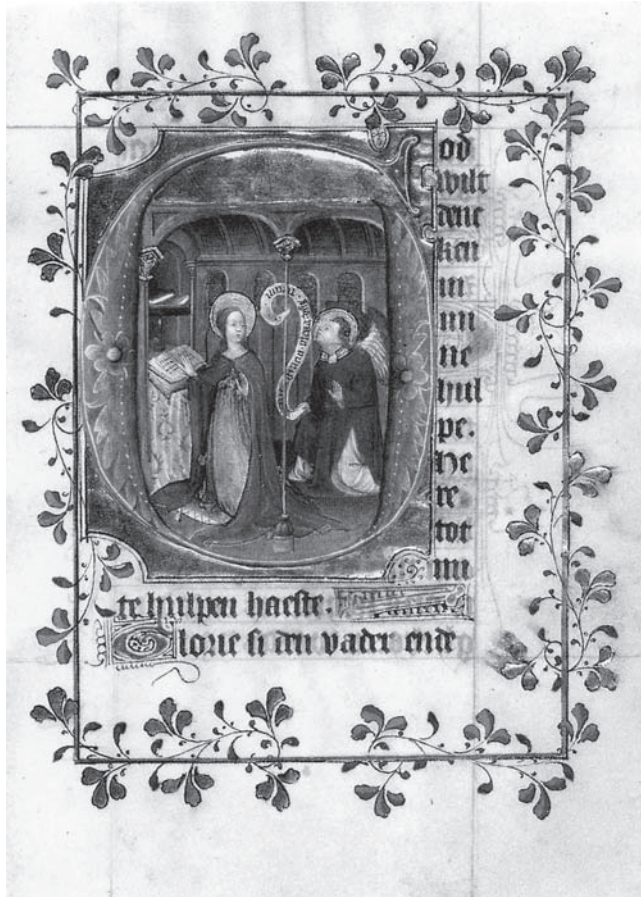 od
wilt
denc
ken
in
mi
ne
hul
pe.
He
re
tot
mi
te hulpen haeste.
Glorie si den vader ende